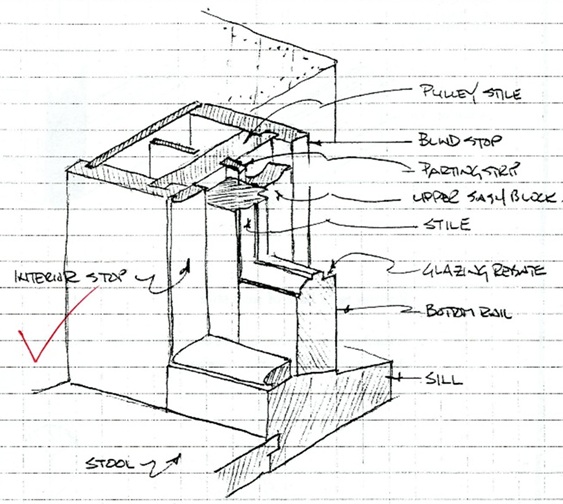 PULLEY STILE
BLIND STOP
PARTING STRIP
UPPER SASH BLOCK
STILE
INTERIOR STOP
GLAZING REBATE
BOTTOM RAIL
SILL
STOOL